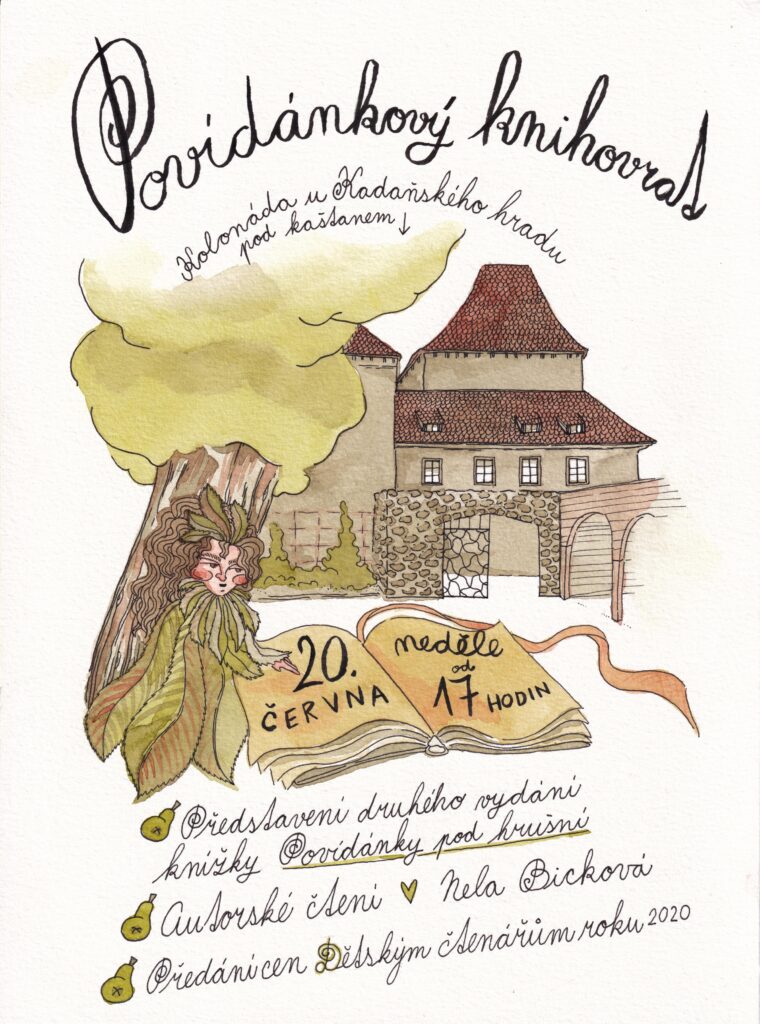 Povídánkový knihovrat
Kolonáda u Kadaňského hradu
pod kaštanem ↓
20.
ČERVNA
neděle
od
17 HODIN
Představení druhého vydání
knížky Povídánky pod hrušní
Autorské čtení ♥ Nela Bicková
Předání cen Dětským čtenářům roku 2020